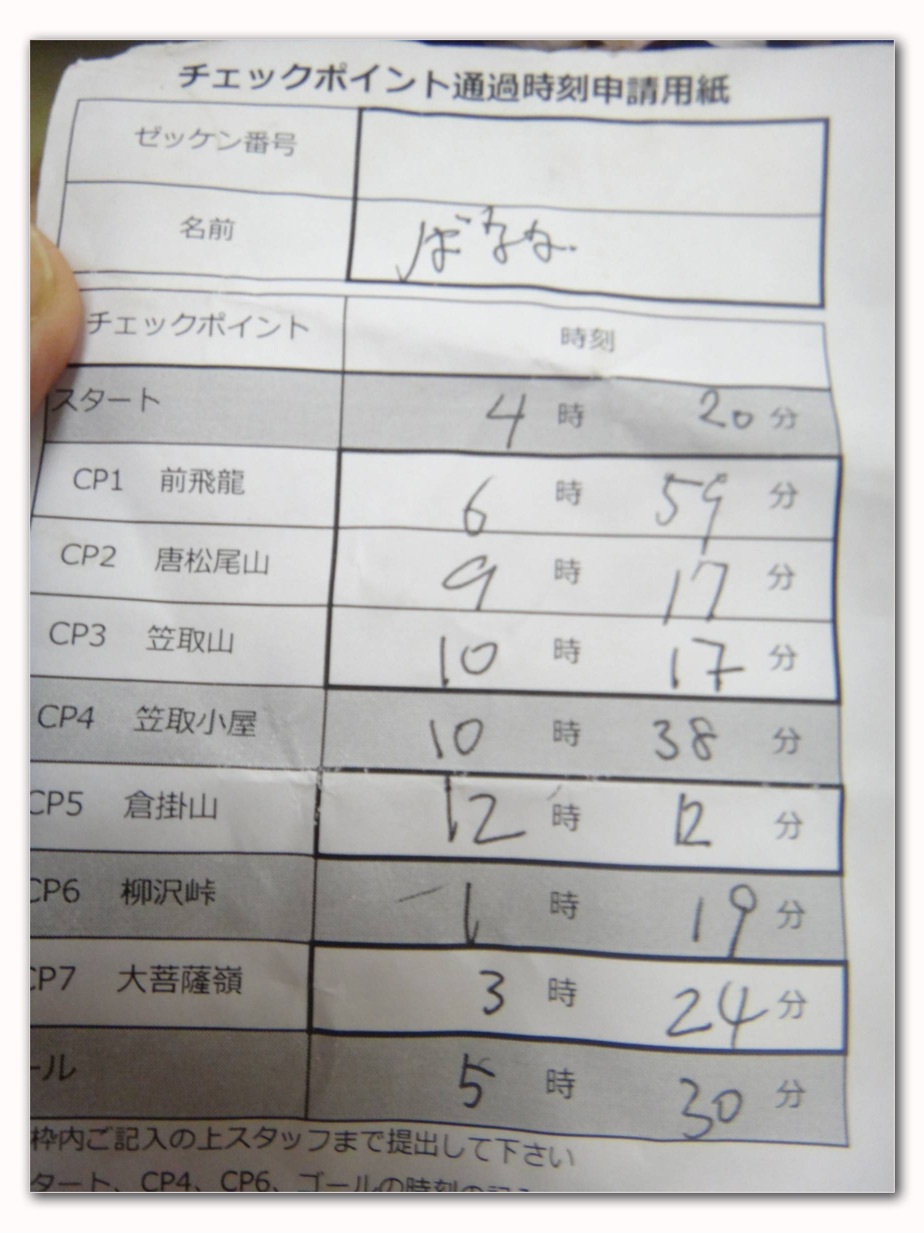 チェックポイント通過時刻申請用紙
ゼッケン番号
名前 ばなな
チェックポイント 時刻
スタート 4時 20分
CP1 前飛龍 6時 59分
CP2 唐松尾山 9時 17分
CP3 笠取山 10時 17分
CP4 笠取小屋 10時 38分
CP5 倉掛山 12時 12分
CP6 柳沢峠 1時 19分
CP7 大菩薩嶺 3時 24分
ール 5時 30分
枠内ご記入の上スタッフまで提出して下さい
タート、CP4、CP6、ゴールの時刻の記